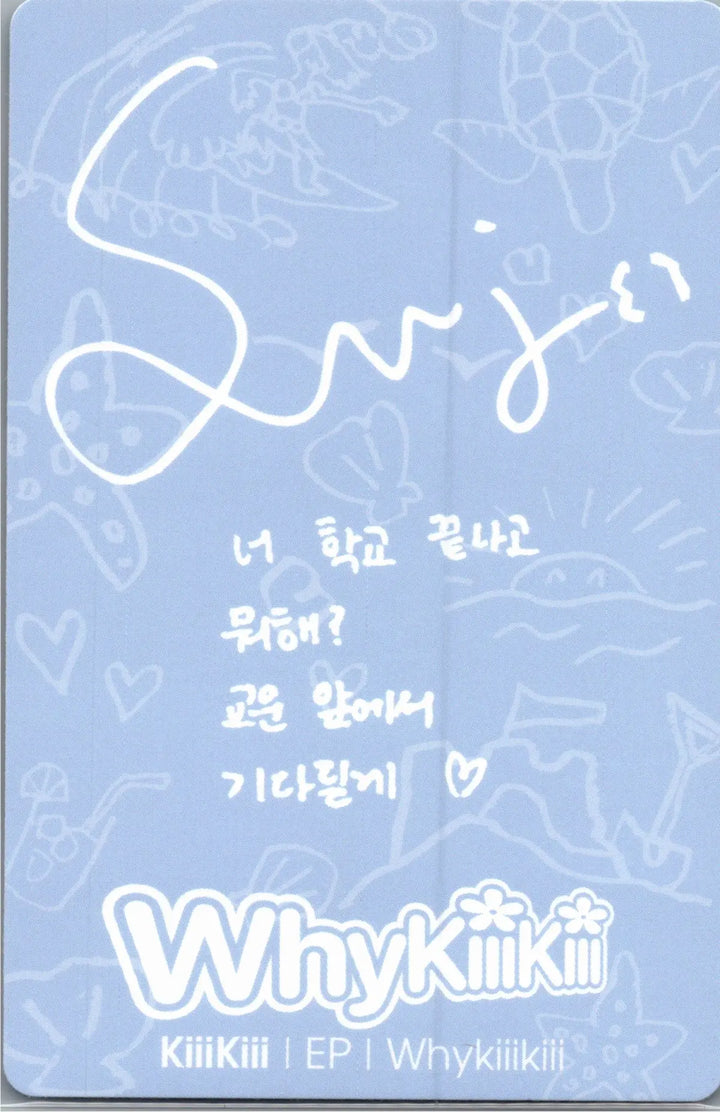 Sui
너 학교 끝나고
뭐해?
교문 앞에서
기다릴게 ♡
WhyKiiiKiii
KiiiKiii | EP | Whykiiikiii